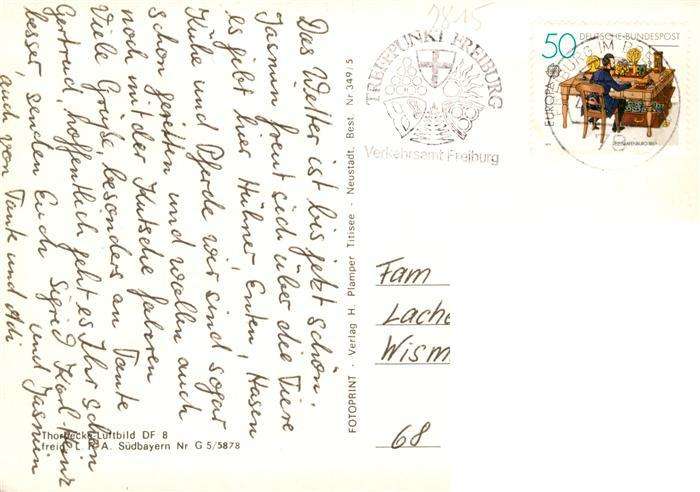 Das Wetter ist bis jetzt schön.
Jasmin freut sich über die Tiere
es gibt hier Hühner Enten, Hasen
Kühe und Pferde wir sind sogar
schon geritten und wollen auch
noch mit der Kutsche fahren
Viele Grüße, besonders an Tante
Gertrud, hoffentlich geht es Ihr schon
besser, senden Euch Sigrid Karl-Heinz
und Jasmin
auch von Tante und Adi
Thorbecke-Luftbild DF 8
freig. L. R. A. Südbayern Nr G 5/5878
FOTOPRINT - Verlag H. Plamper Titisee - Neustadt. Best. Nr 349/5
2815
TREFFPUNKT FREIBURG
Verkehrsamt Freiburg
50 DEUTSCHE BUNDESPOST
EUROPA
BURG IM
Fam
Lache
Wism
68